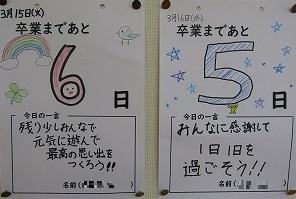 3月15日(火)
卒業まであと
6
日
今日の一言
残り少しみんなで
元気に遊んで
最高の思い出を
つくろう!!
名前(
3月16日(水)
卒業まであと
5
日
今日の一言
みんなに感謝して
1日1日を
過ごそう!!
名前(